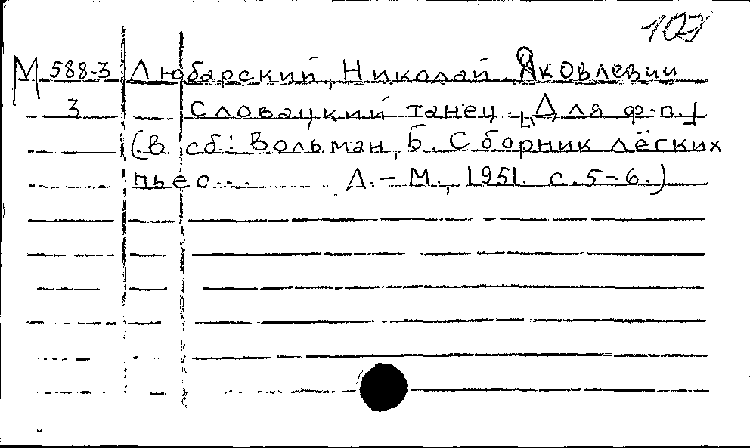 107
М 588-3 Любарский, Николай Яковлевич
3 Словацкий танец. [Для ф-п.]
(В сб: Вольман, Б. Сборник лёгких
пьес... Л.-М., 1951. с. 5-6.)